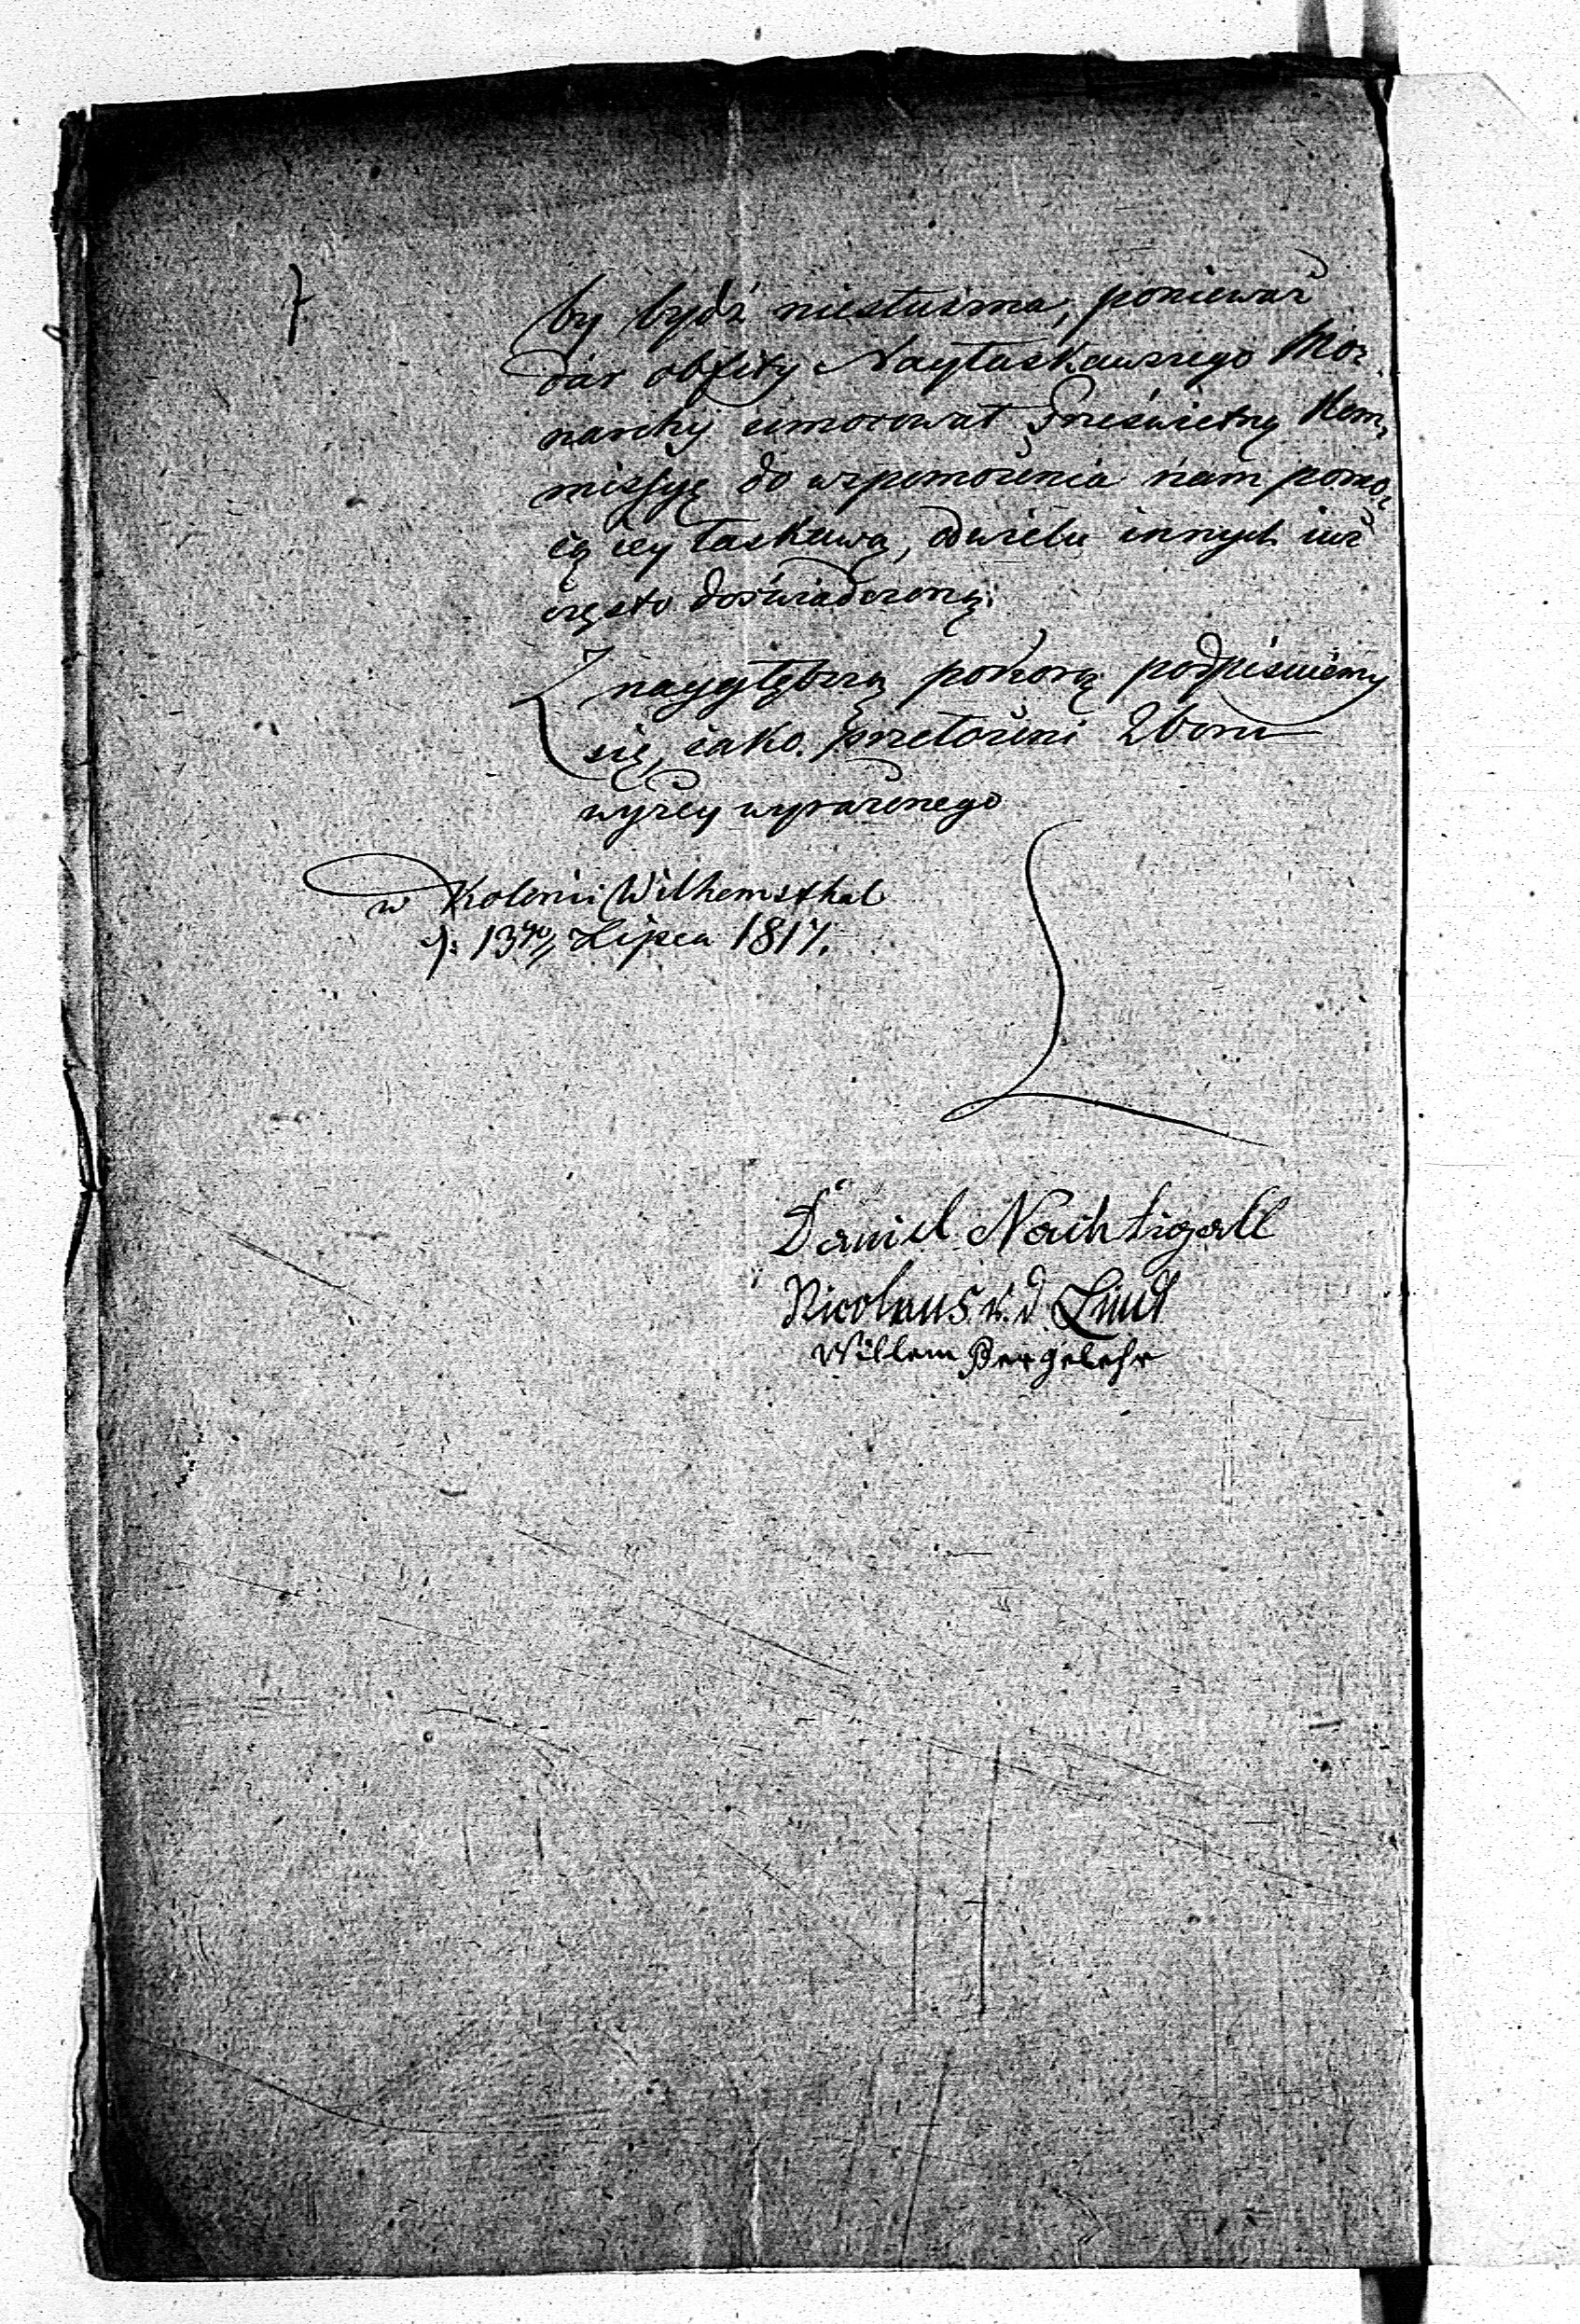 by bydź niesłuszna, ponieważ
dar obfity Nayłaskawszego Mo=
narchy umocował Prześwietną Kom=
missyę do wspomożenia nam pomo=
cą iey łaskawą, od wielu innych iuż
często doświadczoną.
Z naygłębszą pokorą podpisuiemy
się, iako przełożeni Zboru
wyżey wyrażonego
w Kolonii Wilhemsthal
d: 13go Lipca 1817.
Daniel Nachtigall
Nicolaus v. d. Lind
Willem